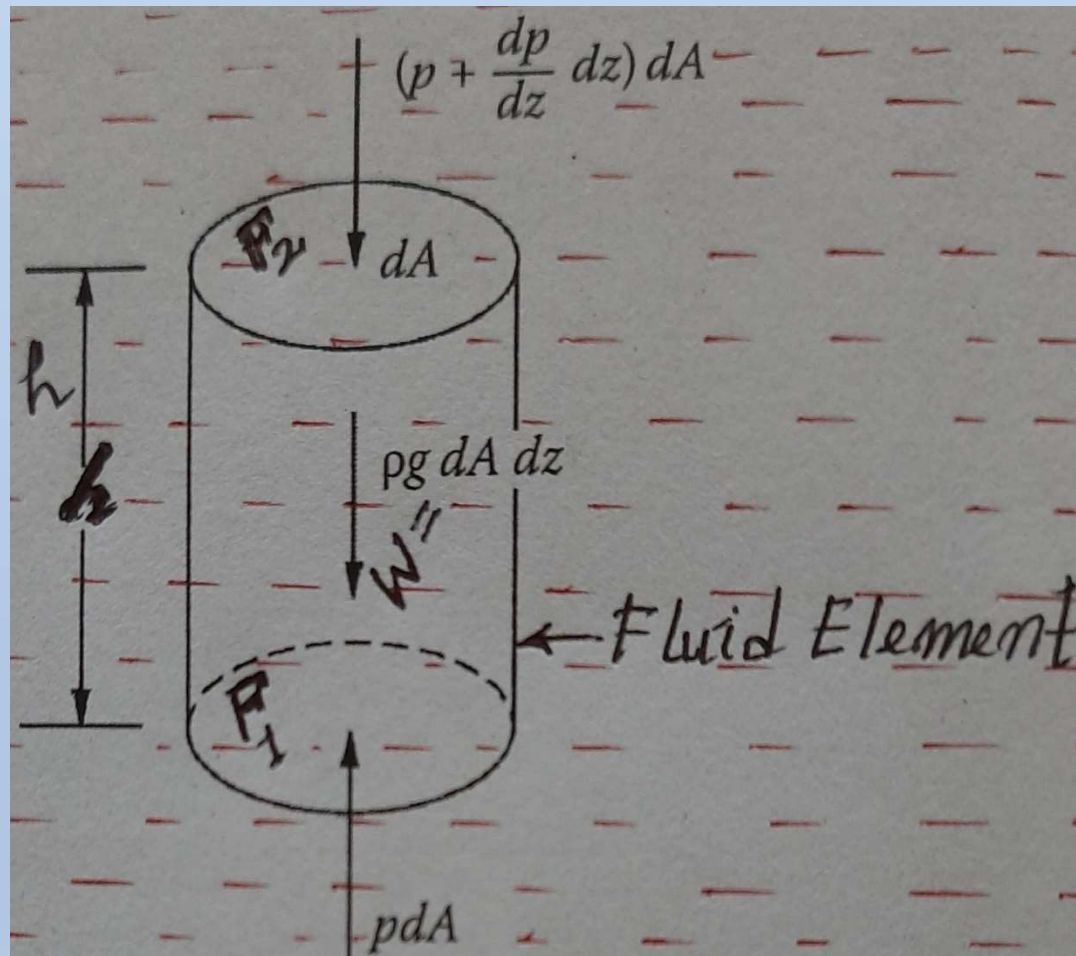 (p + dp/dz dz) dA
P₂
dA
h
h
ρg dA dz
W"
Fluid Element
P₁
pdA